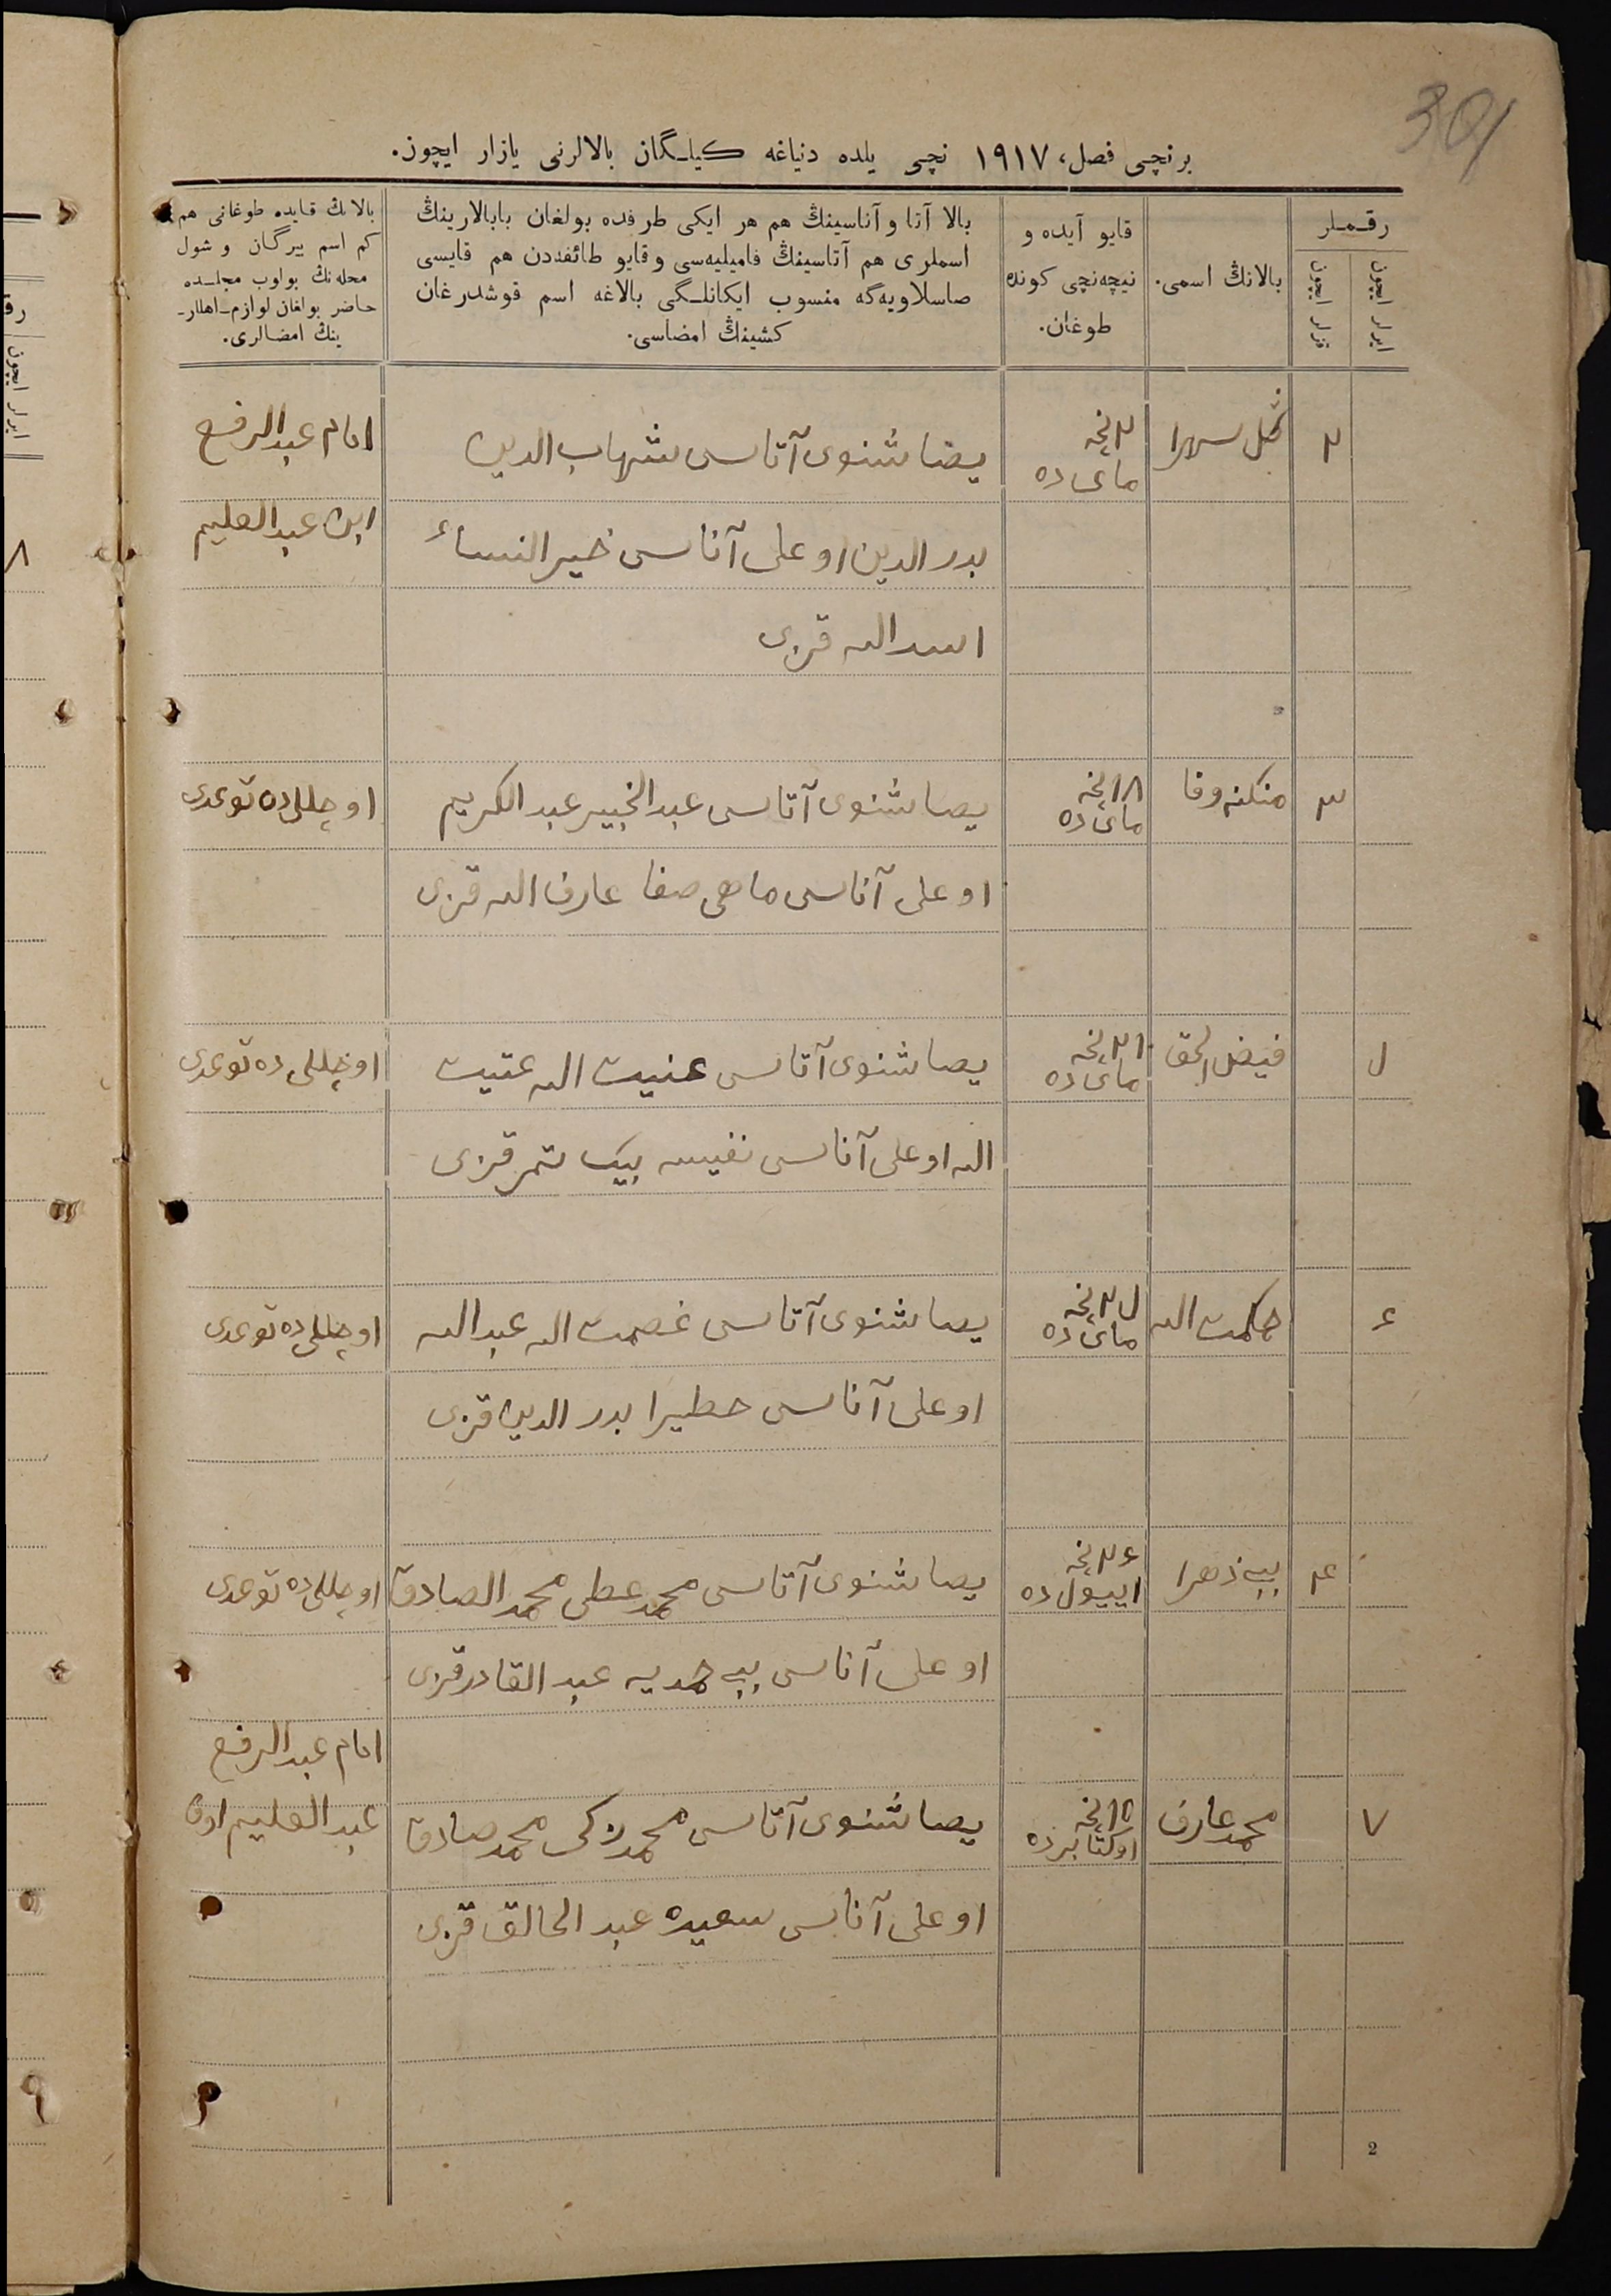 301
برنچی فصل، ١٩١٧ نچی یلده دنیاغه کیلـگان بالالرنی یازار ایچون.
رقـمـلر
ایرلر ایچون
قزلر ایچون
بالانڭ اسمی.
قایو آیده و
نیچه‌نچی کونده
طوغان.
بالا آتا و آناسینڭ هم هر ایکی طرفده بولغان بابالارینڭ
اسملری هم آتاسینڭ فامیلیه‌سی و قایو طائفه‌دن هم قایسی
صاسلاویه‌گه منسوب ایکانلـگی بالاغه اسم قوشدرغان
کشینڭ امضاسی.
بالانڭ قایده طوغانی هم
کم اسم بیرگان و شول
محله‌نڭ بولوب مجلـسده
حاضر بولغان لوازم-اهللر-
ینڭ امضالری.
٢
٢ نچه
مای ده
یصاشنوی آتاسی شهاب الدین
امام عبدالرفیع
ابن عبدالعلیم
بدر الدین اوغلی آناسی خیر النساء
اسدالله قزی
٣
منکنه وفا
١٨ نچه
مای ده
یصاشنوی آتاسی عبدالخبیر عبدالکریم
اوچللی ده توغدی
اوغلی آناسی ماهی صفا عارف الله قزی
فیض الحق
٢١ نچه
مای ده
یصاشنوی آتاسی عنیت الله عتیت
اوچللی ده توغدی
الله اوغلی آناسی نفیسه بیک تمر قزی
حکمت الله
مای ده
یصاشنوی آتاسی غصمت الله عبدالله
اوچللی ده توغدی
اوغلی آناسی خطیرا بدر الدین قزی
٤
بیبی زهرا
اییول ده
یصاشنوی آتاسی محمد عطی محمد الصادق
اوچللی ده توغدی
اوغلی آناسی بیبی حمدیه عبد القادر قزی
٧
محمد عارف
١٥ نچه
اوکتابرده
یصاشنوی آتاسی محمد زکی محمد صادق
امام عبدالرفیع
عبد العلیم اوف
اوغلی آناسی سعیده عبد الخالق قزی
2